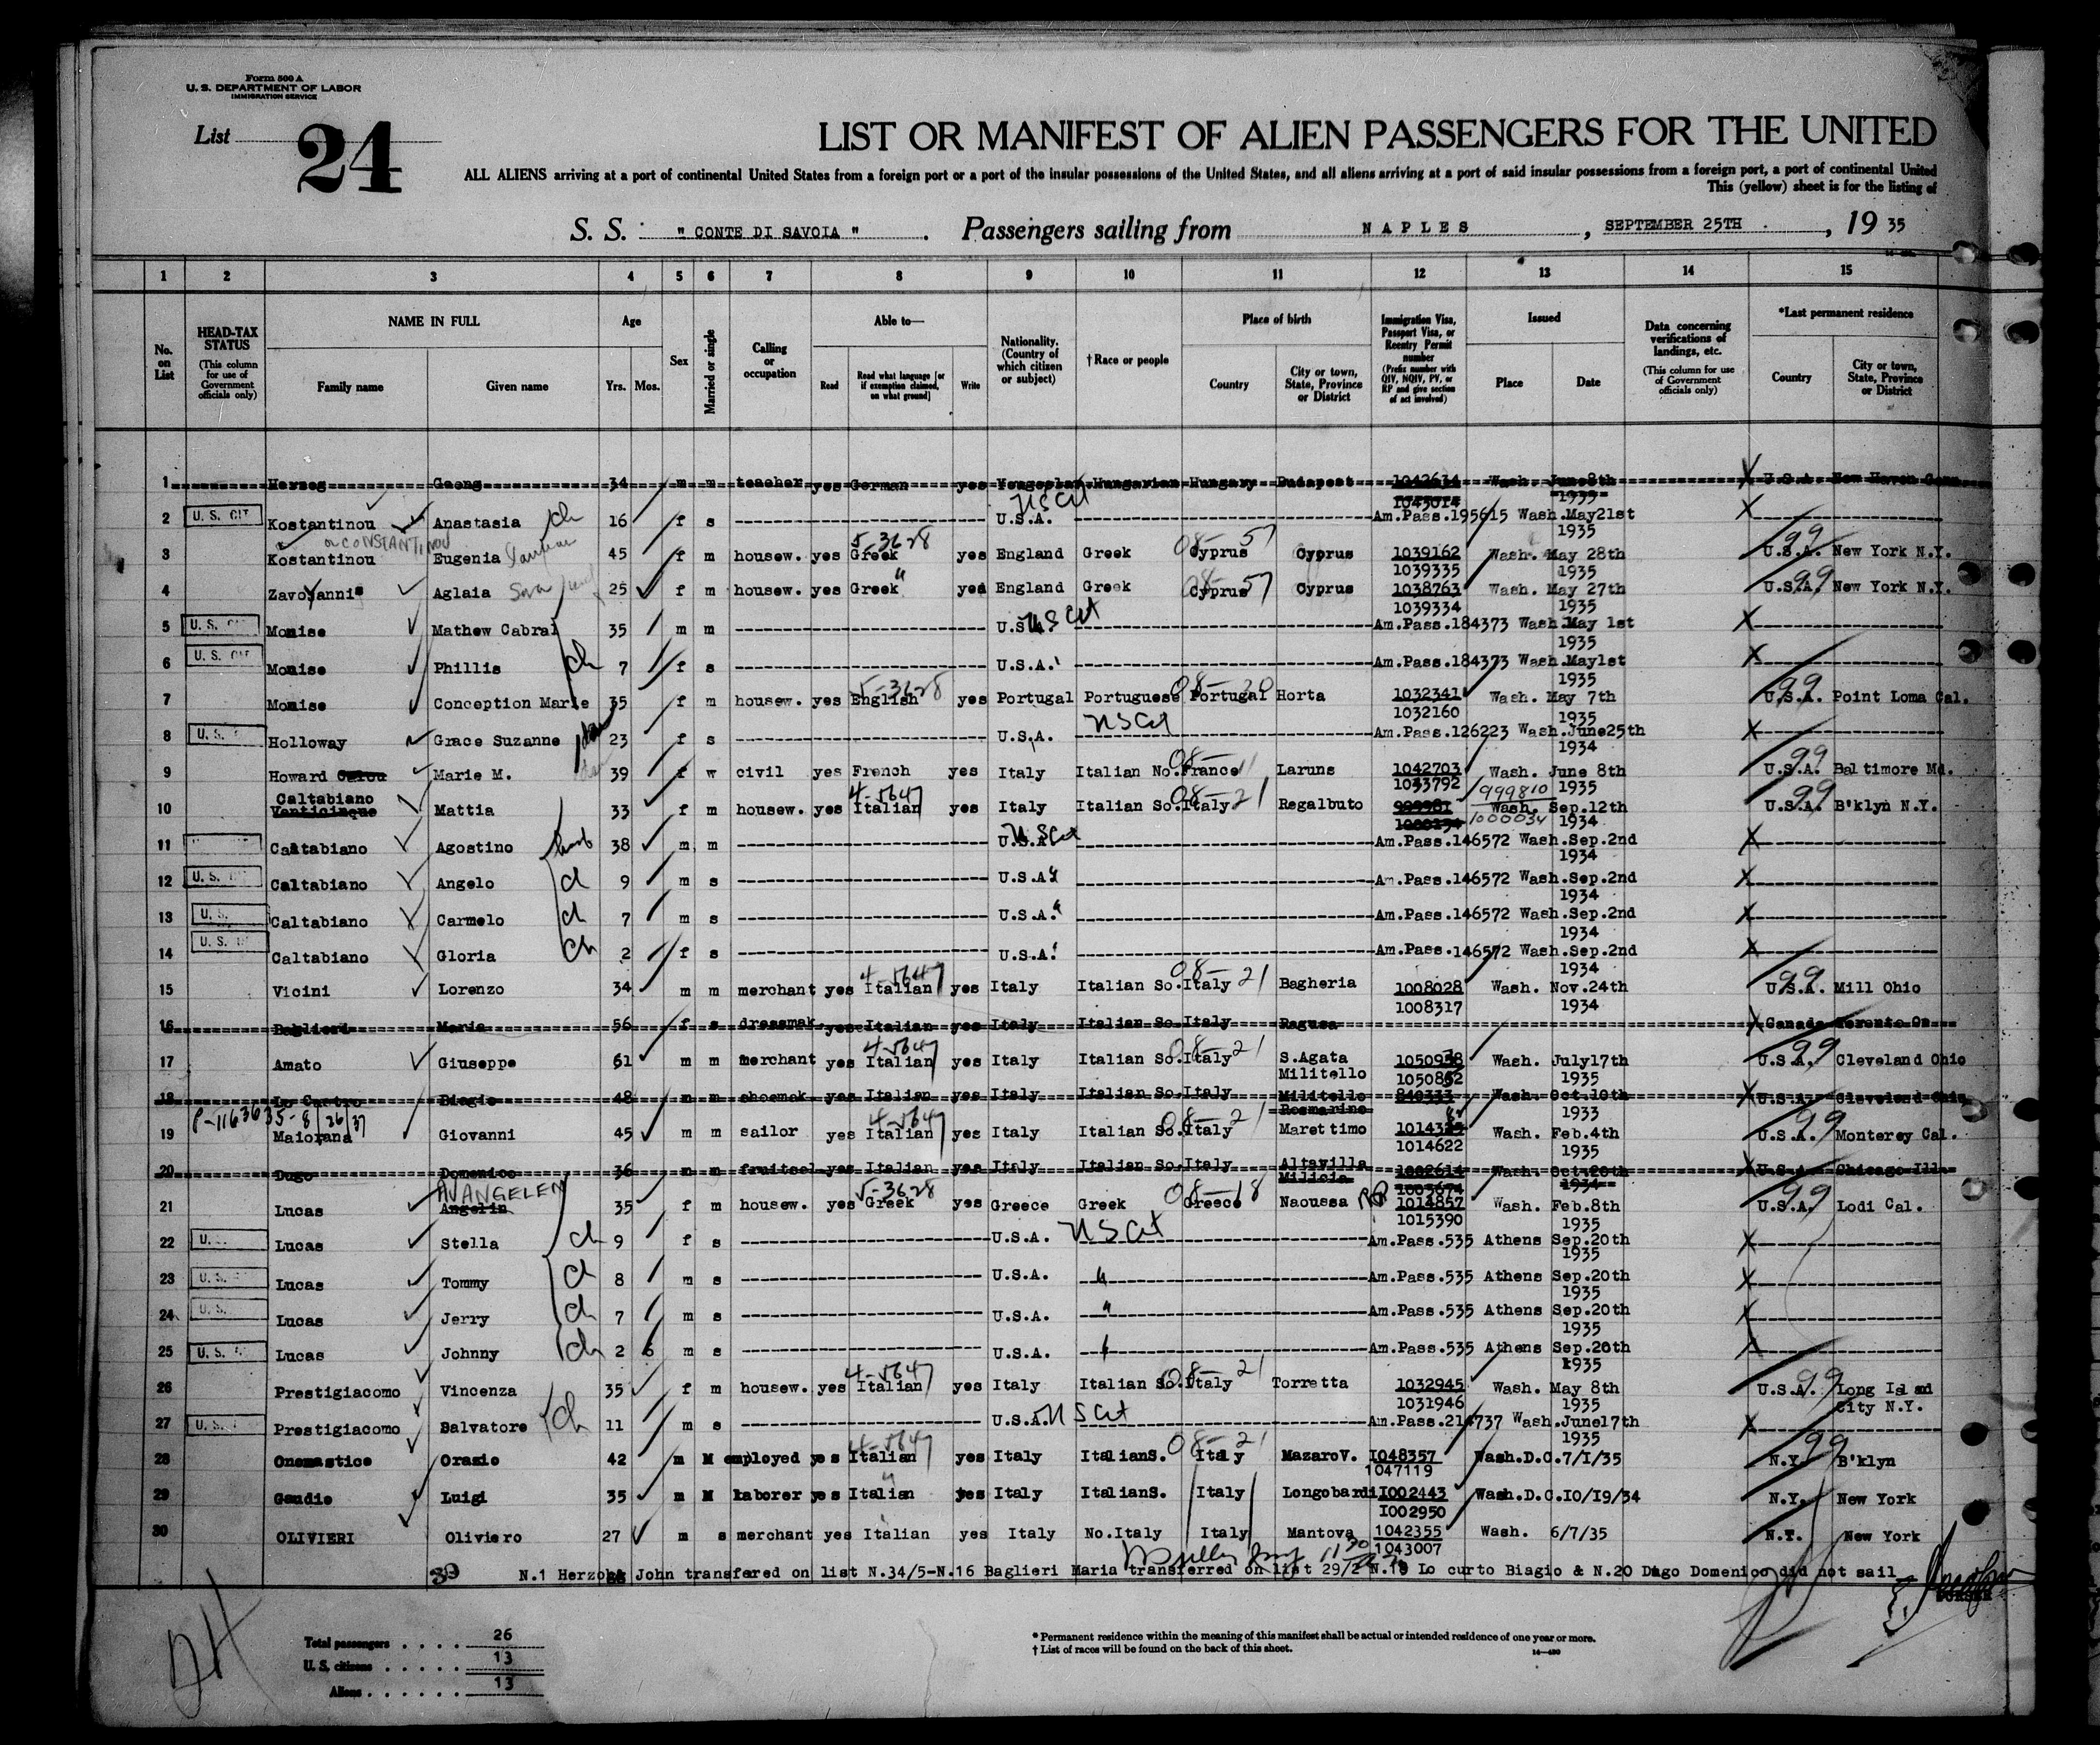 Form 500 A
U. S. DEPARTMENT OF LABOR
IMMIGRATION SERVICE
List 24
LIST OR MANIFEST OF ALIEN PASSENGERS FOR THE UNITED
ALL ALIENS arriving at a port of continental United States from a foreign port or a port of the insular possessions of the United States, and all aliens arriving at a port of said insular possessions from a foreign port, a port of continental United
This (yellow) sheet is for the listing of
S. S. " CONTE DI SAVOIA " . Passengers sailing from N A P L E S , SEPTEMBER 25TH . , 19 35
1 2 3 4 5 6 7 8 9 10 11 12 13 14 15
No. on List
HEAD-TAX STATUS (This column for use of Government officials only)
NAME IN FULL Family name Given name
Age Yrs. Mos.
Sex
Married or single
Calling or occupation
Able to— Read Read what language [or if exemption claimed, on what ground] Write
Nationality. (Country of which citizen or subject)
† Race or people
Place of birth Country City or town, State, Province or District
Immigration Visa, Passport Visa, or Reentry Permit number (Prefix number with QIV, NQIV, PV, or RP and give section of act involved)
Issued Place Date
Data concerning verifications of landings, etc. (This column for use of Government officials only)
*Last permanent residence Country City or town, State, Province or District
1 Herzog Georg 34 m m teacher yes German yes Hungarian Hungary Budapest 1042614 Wash. June 8th U.S.A. New Haven Conn.
1043014 1935
2 U. S. CIT Kostantinou Anastasia ch 16 f s U.S.A. US Cit Am.Pass.195615 Wash.May21st
or CONSTANTINOU 1935
3 Kostantinou Eugenia 45 f m housew. yes Greek 5-3628 yes England Greek Cyprus 08-57 Cyprus 1039162 Wash. May 28th U.S.A. 99 New York N.Y.
1039335 1935
4 Zavoyannis Aglaia 25 f m housew. yes Greek " yes England Greek Cyprus 08-57 Cyprus 1038763 Wash. May 27th U.S.A. 99 New York N.Y.
1039334 1935
5 U. S. CIT Monise Mathew Cabral 35 m m U.S.A. US Cit Am.Pass.184373 Wash.May 1st
1935
6 U. S. CIT Monise Phillis ch 7 f s U.S.A. Am.Pass.184373 Wash.May1st
1935
7 Monise Conception Marie 35 f m housew. yes English 5-3628 yes Portugal Portuguese Portugal 08-20 Horta 1032341 Wash. May 7th U.S.A. 99 Point Loma Cal.
1032160 1935
8 U. S. Holloway Grace Suzanne 23 f s U.S.A. US Cit Am.Pass.126223 Wash.June25th
1934
9 Howard Marie M. 39 f w civil yes French yes Italy Italian No. France 08-11 Laruns 1042703 Wash. June 8th U.S.A. 99 Baltimore Md.
1043792 1935
10 Caltabiano Venticinque Mattia 33 f m housew. yes Italian 4-5647 yes Italy Italian So. Italy 08-21 Regalbuto 999981 999810 Wash. Sep.12th U.S.A. 99 B'klyn N.Y.
1000034 1934
11 Caltabiano Agostino husb 38 m m U.S.A. US Cit Am.Pass.146572 Wash.Sep.2nd
1934
12 U. S. Caltabiano Angelo ch 9 m s U.S.A. " Am.Pass.146572 Wash.Sep.2nd
1934
13 U. S. Caltabiano Carmelo ch 7 m s U.S.A. " Am.Pass.146572 Wash.Sep.2nd
1934
14 U. S. Caltabiano Gloria ch 2 f s U.S.A. " Am.Pass.146572 Wash.Sep.2nd
1934
15 Vicini Lorenzo 34 m m merchant yes Italian 4-5647 yes Italy Italian So. Italy 08-21 Bagheria 1008028 Wash. Nov.24th U.S.A. 99 Mill Ohio
1008317 1934
16 Baglieri Maria 56 f s dressmak. yes Italian yes Italy Italian So. Italy Ragusa Canada Toronto On
17 Amato Giuseppe 61 m m merchant yes Italian 4-5647 yes Italy Italian So. Italy 08-21 S.Agata Militello 1050938 Wash. July17th U.S.A. 99 Cleveland Ohio
1050862 1935
18 Biagio 48 m m shoemak yes Italian yes Italy Italian So. Italy Militello Rosmarino 840333 Wash. Oct.10th U.S.A. Cleveland Ohio
1933
P-1163635-8/26/37
19 Maiorana Giovanni 45 m m sailor yes Italian 4-5647 yes Italy Italian So. Italy 08-21 Marettimo Wash. Feb.4th U.S.A. 99 Monterey Cal.
1014622 1935
20 Dugo Domenico 36 m m fruitsel yes Italian yes Italy Italian So. Italy Altavilla Milicia 1002614 Wash. Oct.20th U.S.A. Chicago Ill.
1003674 1934
21 Lucas AVANGELEN Angelin 35 f m housew. yes Greek 5-3628 yes Greece Greek Greece 08-18 Naoussa RP 1014857 Wash. Feb.8th U.S.A. 99 Lodi Cal.
1015390 1935
22 U. Lucas Stella ch 9 f s U.S.A. US Cit Am.Pass.535 Athens Sep.20th
1935
23 U. S. Lucas Tommy ch 8 m s U.S.A. " Am.Pass.535 Athens Sep.20th
1935
24 U. S. Lucas Jerry ch 7 m s U.S.A. " Am.Pass.535 Athens Sep.20th
1935
25 U. S. Lucas Johnny ch 2 6 m s U.S.A. " Am.Pass.535 Athens Sep.20th
1935
26 Prestigiacomo Vincenza 35 f m housew. yes Italian 4-5647 yes Italy Italian So. Italy 08-21 Torretta 1032945 Wash. May 8th U.S.A. 99 Long Island City N.Y.
1031946 1935
27 U. S. Prestigiacomo Salvatore ch 11 m s U.S.A. US Cit Am.Pass.214737 Wash.June17th
1935
28 Onomastico Orazio 42 m M employed yes Italian 4-5647 yes Italy ItalianS. Italy 08-21 MazaroV. I048357 Wash.D.C.7/I/35 N.Y. 99 B'klyn
1047119
29 Gaudio Luigi 35 m M laborer yes Italian " yes Italy ItalianS. Italy Longobardi I002443 Wash.D.C.IO/I9/34 N.Y. New York
I002950
30 OLIVIERI Oliviero 27 m s merchant yes Italian yes Italy No.Italy Italy Mantova 1042355 Wash. 6/7/35 N.Y. New York
1043007
N.1 Herzog John transfered on list N.34/5-N.16 Baglieri Maria transferred on list 29/2 N.18 Lo curto Biagio & N.20 Dugo Domenico did not sail
24
Total passengers . . . . 26
U. S. citizens . . . . . 13
Aliens . . . . . . 13
* Permanent residence within the meaning of this manifest shall be actual or intended residence of one year or more.
† List of races will be found on the back of this sheet.
14—430